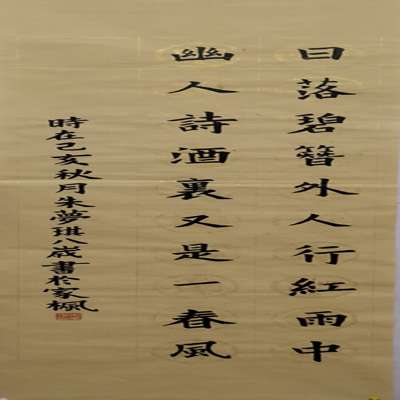 日落碧簪外人行紅雨中
幽人詩酒裏又是一春風
時在己亥秋月朱夢琪八歲書於家楓